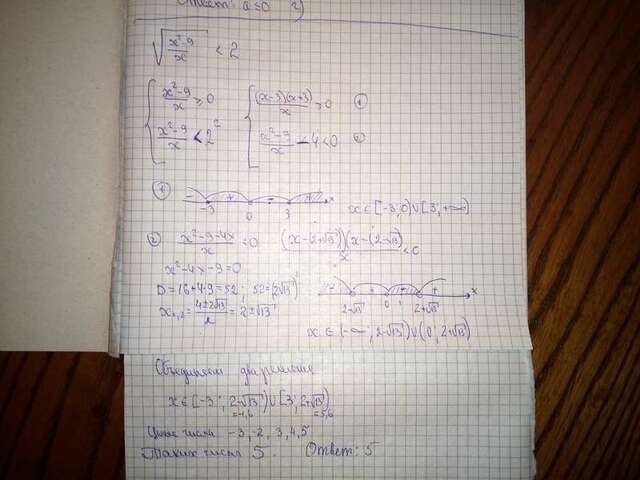 Ответ: a ≤ 0 2)
√((x²-9)/x) < 2
{ (x²-9)/x ≥ 0
(x²-9)/x < 2²
{ (x-3)(x+3)/x ≥ 0 ①
(x²-9)/x - 4 < 0 ②
① - + - + x
-3 0 3
x ∈ [-3; 0) ∪ [3; +∞)
② (x²-9-4x)/x < 0 (x-(2+√13))(x-(2-√13))/x < 0
x²-4x-9=0
D=16+4·9=52; 52=(2√13)²
x₁,₂ = (4±2√13)/2 = 2±√13
- + - + x
2-√13 0 2+√13
x ∈ (-∞; 2-√13) ∪ (0; 2+√13)
Объединяем два решения
x ∈ [-3; 2-√13) ∪ [3; 2+√13)
≈-1,6 ≈5,6
Целые числа -3, -2, 3, 4, 5
Таких чисел 5. Ответ: 5